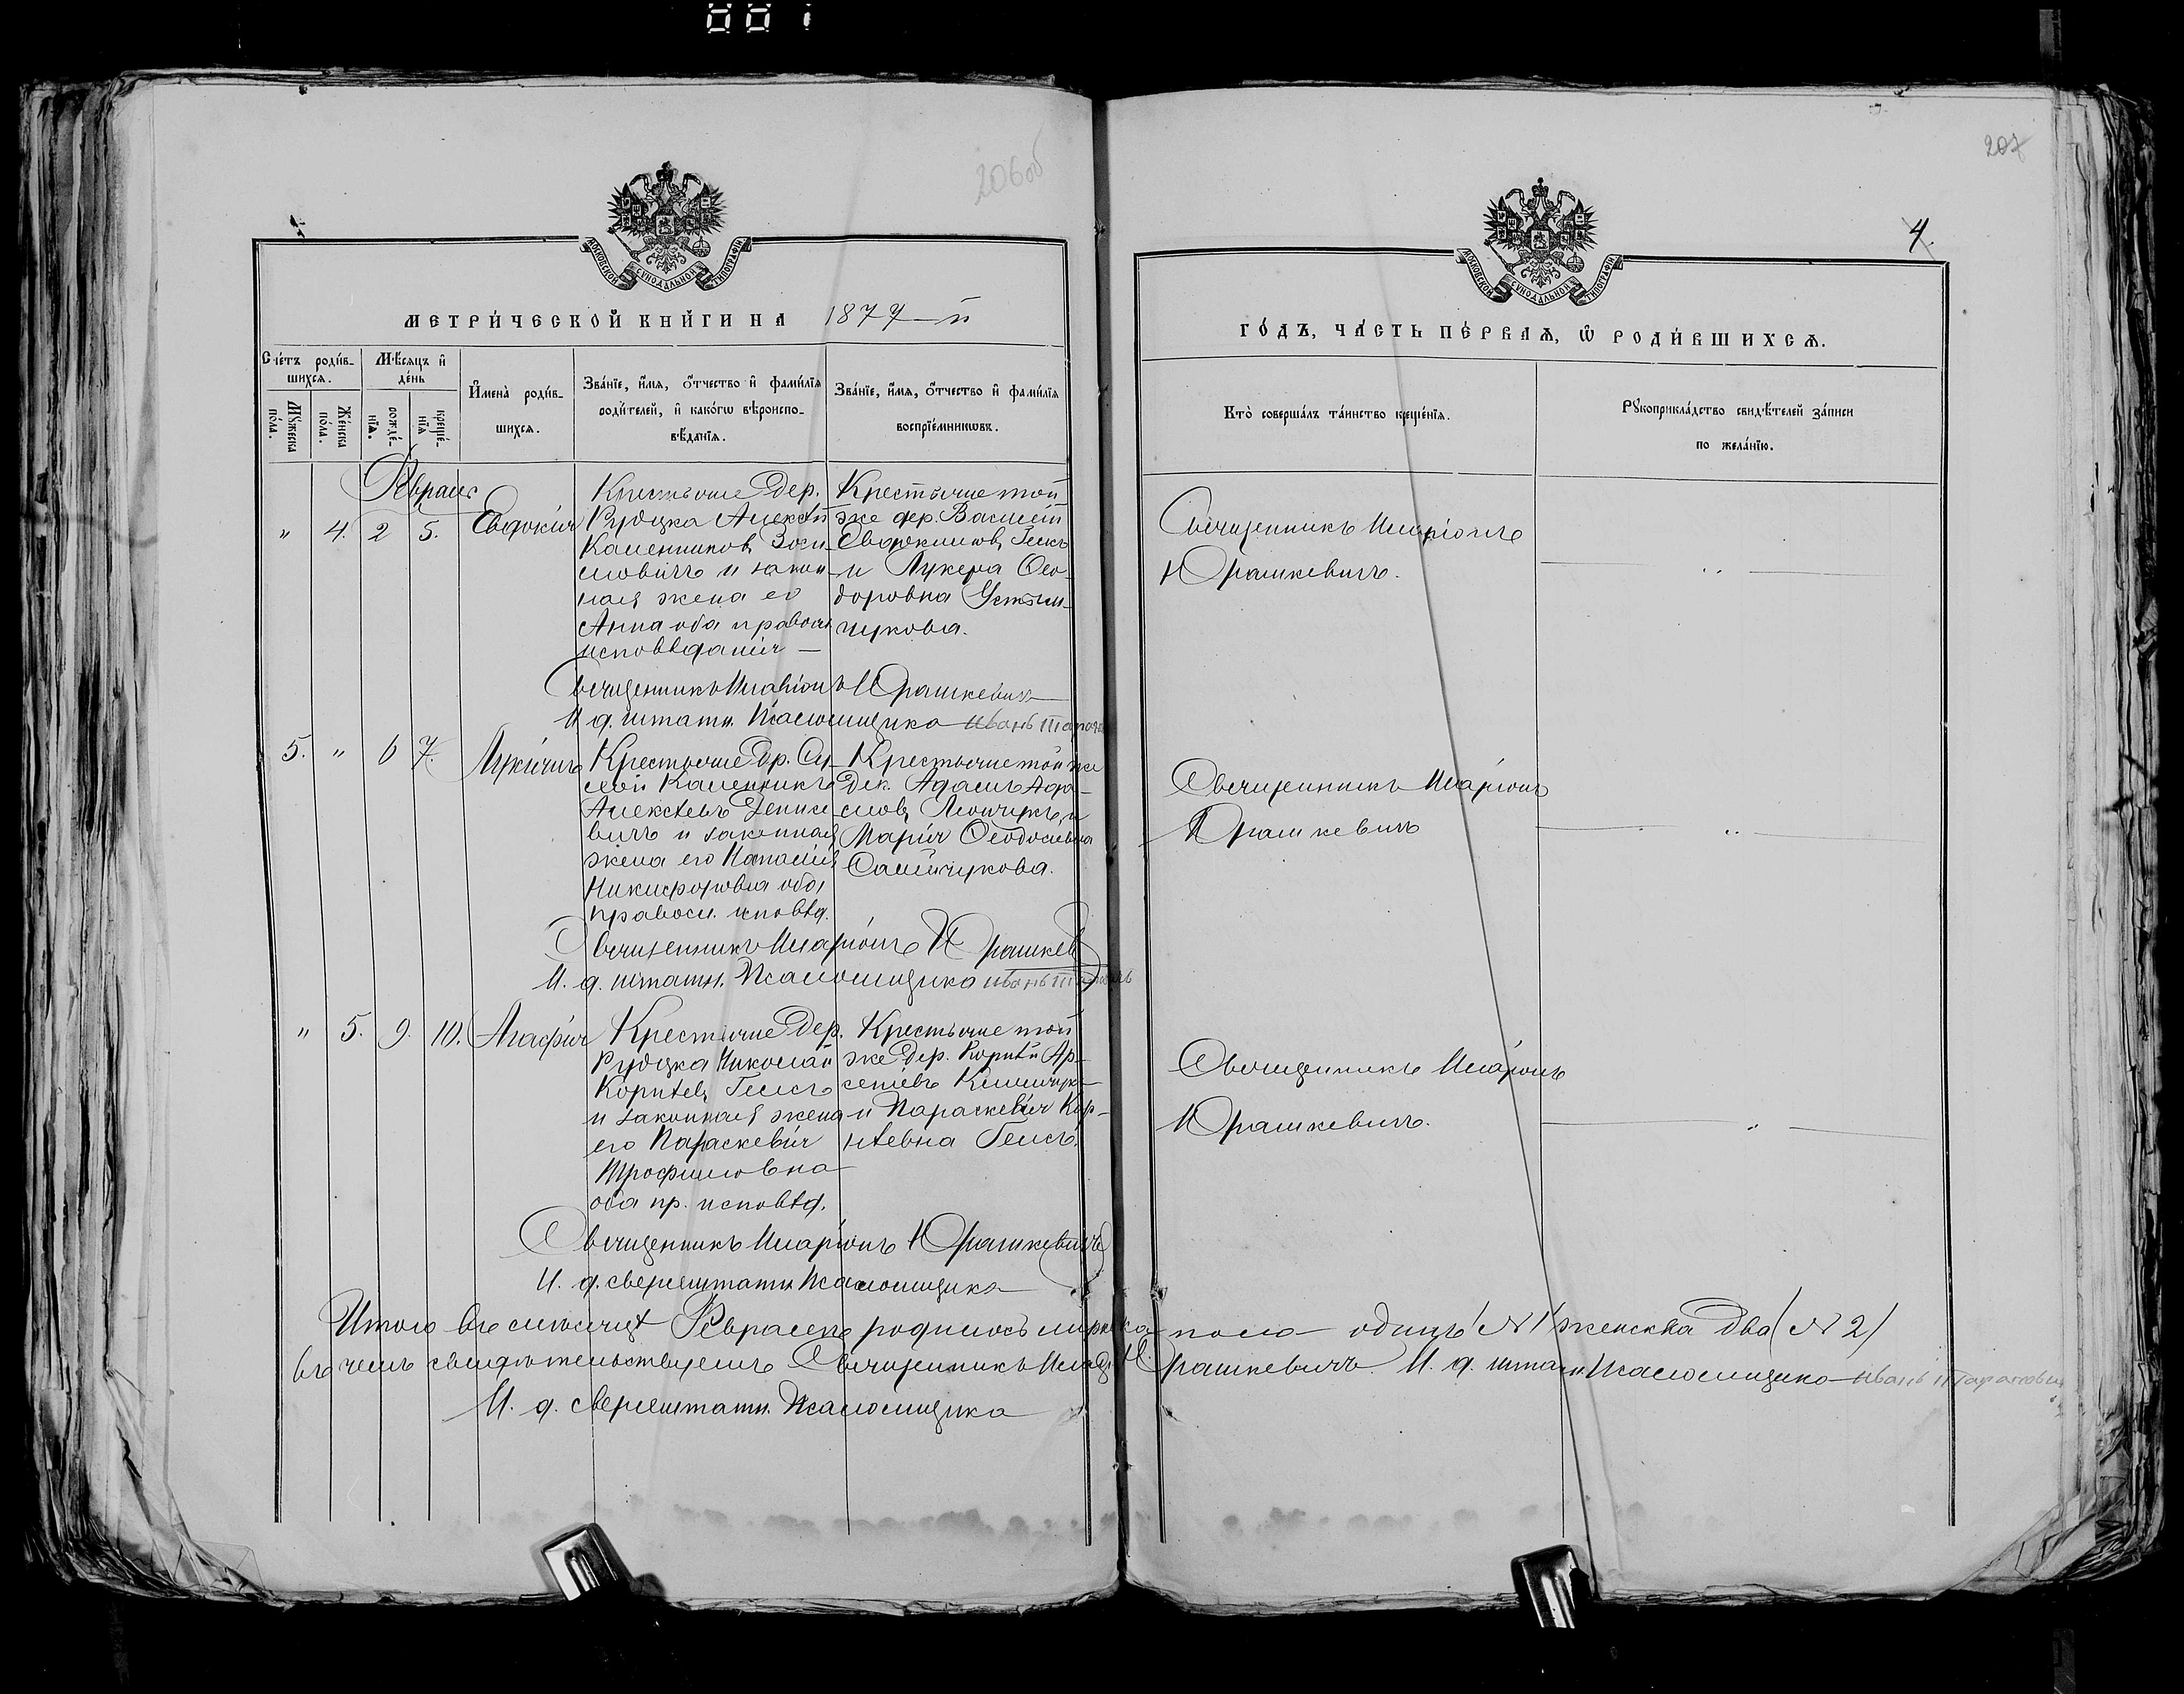 001
206об
207
4.
МОСКОВСКОЙ СѴНОДАЛЬНОЙ ТИПОГРАФІИ
МЕТРИ́ЧЕСКОЙ КНИ́ГИ НА 1877-й
Сче́тъ роди́в-
шихсѧ.
Мѣ́сѧцъ и҆
де́нь
Мꙋ́жеска по́ла.
Же́нска по́ла.
рожде́-
нїѧ.
креще́-
нїѧ
И҆мена̀ роди́в-
шихсѧ.
Зва́нїе, и҆́мѧ, ѻ҆́тчество и҆ фами́лїѧ
роди́телей, и҆ како́гѡ вѣроиспо-
вѣ́данїѧ.
Зва́нїе, и҆́мѧ, ѻ҆́тчество и҆ фами́лїѧ
воспрїе́мникѡвъ.
Февраль
" 4. 2 5. Евдокія
Крестьяне дер.
Рудцка Алексѣй
Каленников Зоси-
мовичъ и закон-
ная жена его
Анна оба правосл
исповѣданія —
Крестьяне той
же дер. Василій
Евдокимов
и Лукера Ѳео-
доровна
чукова.
Священникъ Иларіонъ Юрашкевичъ
И. д. штатн. Псаломщика иванъ
5. " 6 7. Лукіянъ
Крестьяне
Алексѣевъ
вичъ и законная
жена его Наталія
Никифоровна оба
правосл. исповѣд.
Крестьяне той же
дер. Адамъ Ада-
мов и
Марія Ѳеодосіевна
Самійчукова.
Священникъ Иларіонъ Юрашкев
И. д. штатн. Псаломщика иванъ
" 5. 9. 10. Агафія
Крестьяне дер.
Рудцка Николай
Корнѣев Гемсъ
и законная жена
его Параскевія
Трофимовна
оба пр. исповѣд.
Крестьяне той
же дер. Корнѣй Ар-
сеніевъ Климчукъ
и Параскевія Кор-
нѣевна Гемсъ.
Священникъ Иларіонъ Юрашкевичъ
И. д. сверхштатн. Псаломщика
Итого въ мѣсяцѣ Февралѣ родилось мужеска пола одинъ (№ 1) женска два (№ 2)
въ чемъ свидѣтельствуемъ Священникъ Илар. Юрашкевичъ И. д. штатн. Псаломщика иванъ Тарановичъ
И. д. сверхштатн. Псаломщика
МОСКОВСКОЙ СѴНОДАЛЬНОЙ ТИПОГРАФІИ
ГО́ДЪ, ЧА́СТЬ ПЕ́РВАѦ, Ѡ҆ РОДИ́ВШИХСѦ.
Кто̀ соверша́лъ та́инство креще́нїѧ.
Рꙋкоприкла́дство свидѣ́телей за́писи
по жела́нїю.
Священникъ Иларіонъ
Юрашкевичъ.
Священникъ Иларіонъ
Юрашкевичъ
Священникъ Иларіонъ
Юрашкевичъ.